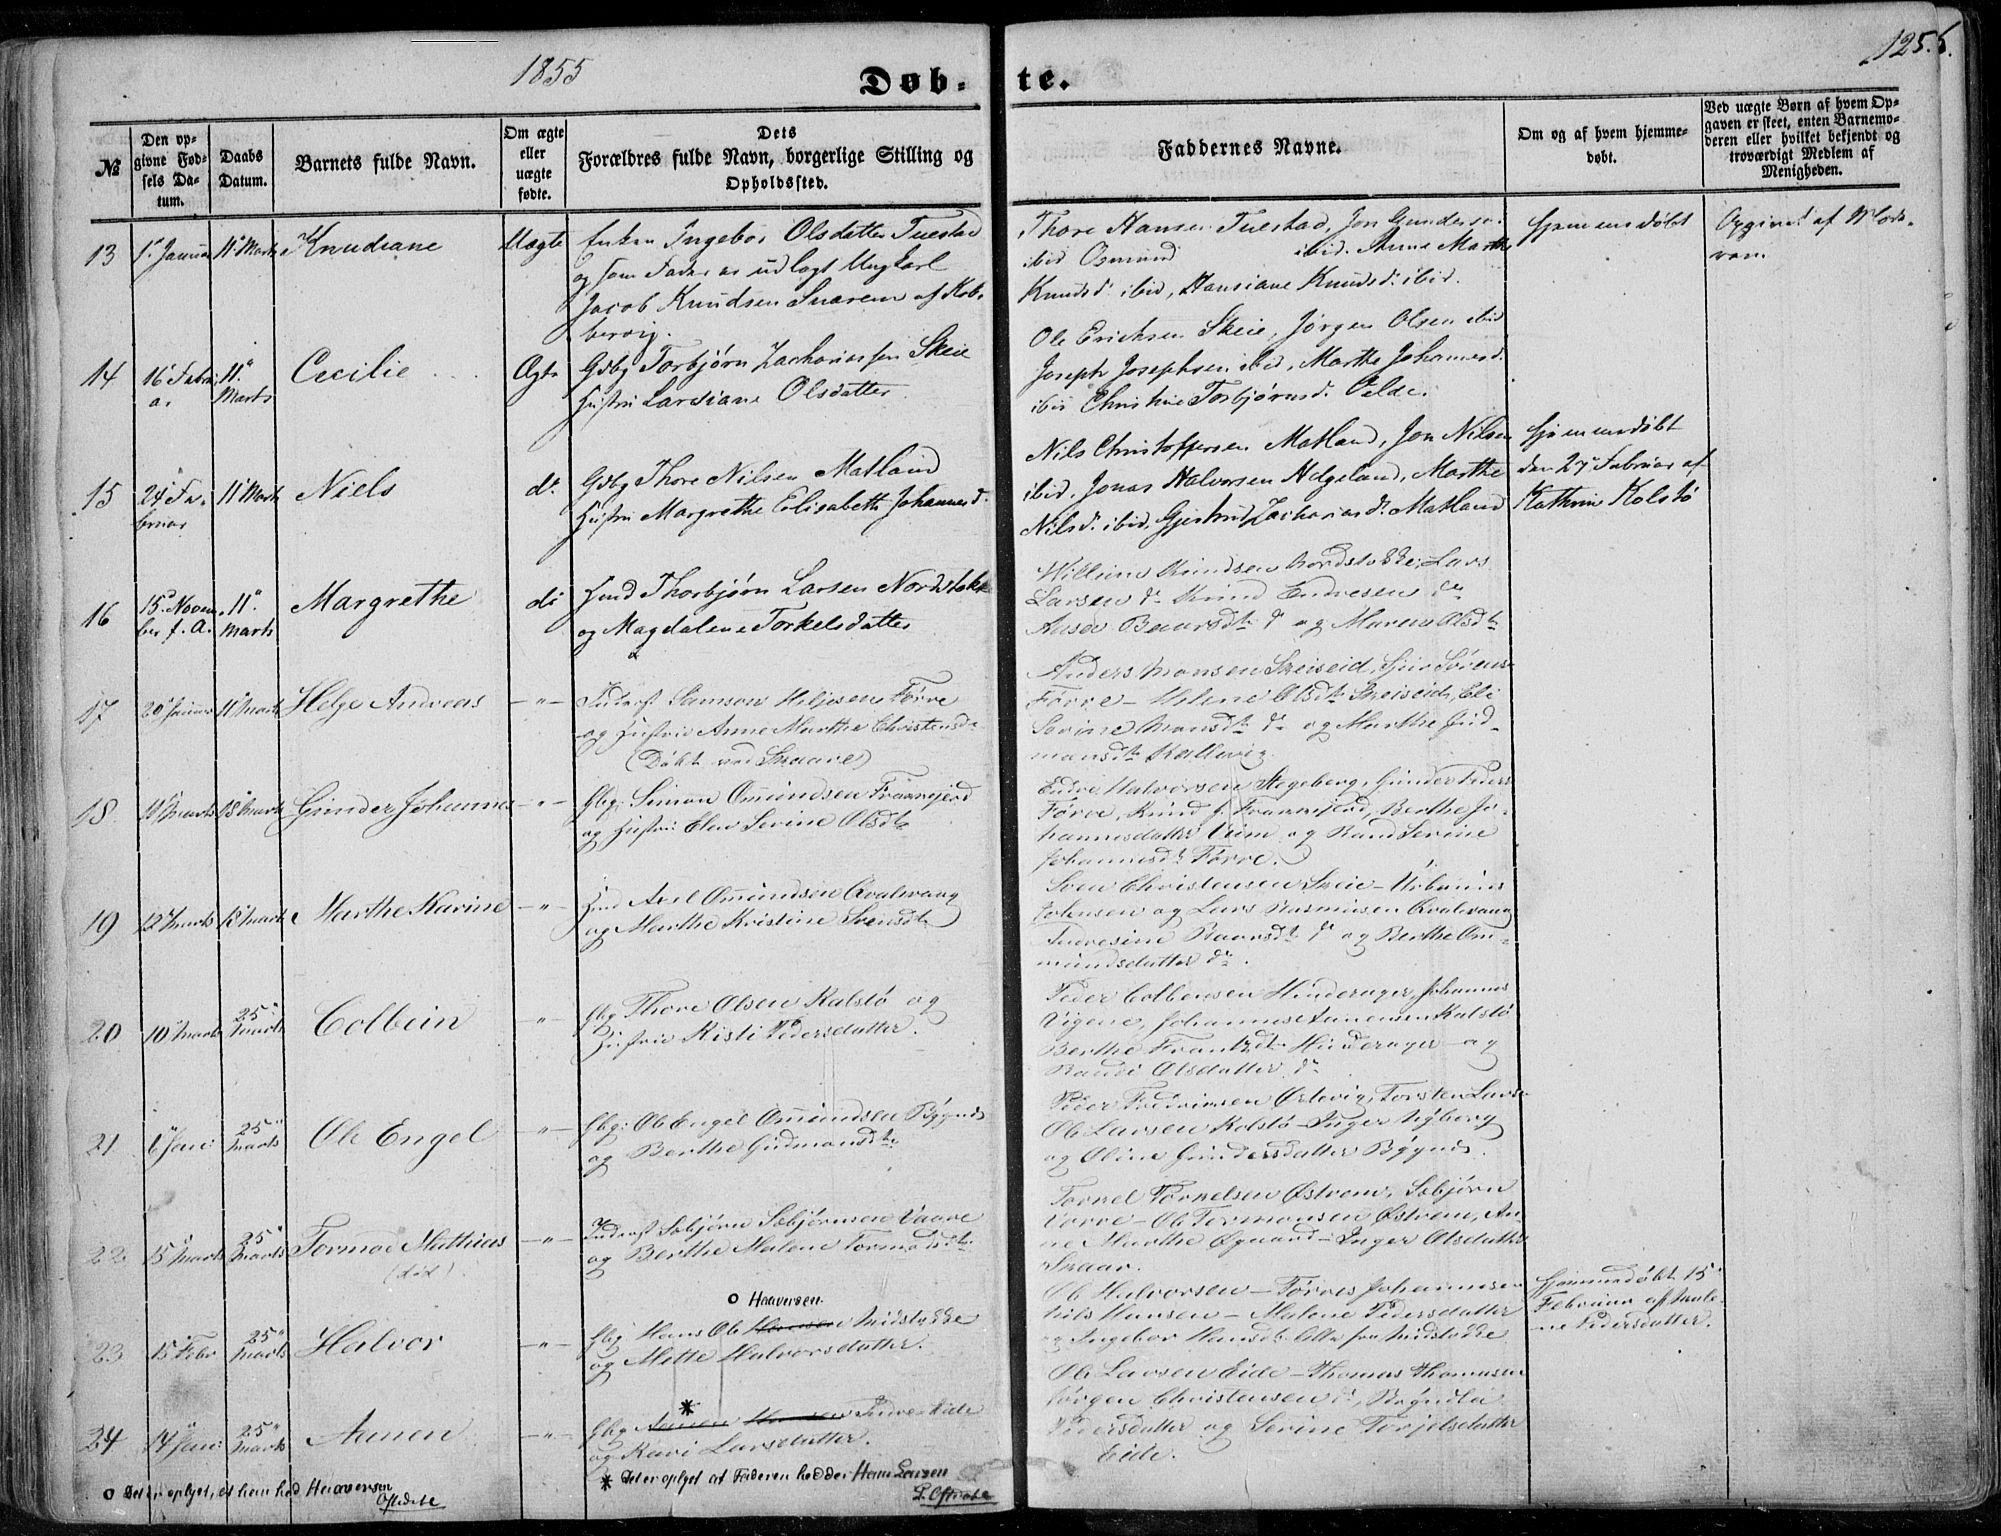 1855
Døb-
te.
125.
№
Den op-
givne Fød-
sels Da-
tum.
Daabs
Datum.
Barnets fulde Navn.
Om ægte
eller
uægte
fødte.
Dets
Forældres fulde Navn, borgerlige Stilling og
Opholdssted.
Faddernes Navne.
Om og af hvem hjemme-
døbt.
Ved uægte Børn af hvem Op-
gaven er skeet, enten Barnemo-
deren eller hvilket bekjendt og
troværdigt Medlem af
Menigheden.
13
1" Januar
11" Marts
Knudiane
Uægte
Enken Ingebor Olsdatter Tuestad
og som Fader er udlagt Ungkarl
Jacob Knudsen Snarem af Kob-
bervig.
Thore Hansen Tuestad, Jon Gunderse.
ibid Osmund ibid. Anne Marthe
Knudsd. ibid, Hansiane Knudsd. ibid.
Hjemmedøbt
Opgivet af Mode-
ren.
14
16 Febru
ar
11"
Marts
Cecilie
Ægte
Gdbg Torbjørn Zachariassen Skeie
Hustru Larsiane Olsdatter
Ole Erichsen Skeie, Jørgen Olsen ibid
Joseph Josephsen ibid, Marthe Johannesd.
ibid Christine Torbjørnsd. Velde.
15
24" Fe-
bruar
11" Marts
Niels
do
Gdbg Thore Nilsen Matland
Hustru Margrethe Elisabeth Johannesd.
Nils Christoffersen Matland, Jon Nilsen
ibid. Jonas Halvorsen Helgeland, Marthe
Nilsd. ibid, Gjertrud Zachariasd. Matland
Hjemmedøbt
den 27 Februar af
Kathrine Kolstø
16
15" Novem
ber f. A.
11"
Marts
Margrethe
do
Huusmd Thorbjørn Larsen Nordstokke
og Magdalene Torkelsdatter
Willum Knudsen Nordstokke, Lars
Larsen do Knud Endresen do
Baarsdtr do og Maren Olsdtr
17
20" Januar
11" Marts
Helge Andreas
—"—
Inderst Samson Heljesen Førre
og Hustrue Anne Marthe Christensdr
(Døbt ved Skaare)
Anders Monsen Skeiseid, Geir Sørens
Førre — Helene Olsdtr Skeiseid, Eli
Serine Monsdtr do og Marthe Gud-
mansdtr Kallevig
18
11" Marts
18" Marts
Gunder Johannes
—"—
Gbg: Simon Omundsen Frannjerd
og Hustru Elen Serine Olsdtr
Endre Halvorsen Stegeberg, Gunder Peders
Førre, Knud J. Frannjerd, Berthe Jo-
hannesdatter Veim og Rand Serine
Johannesdtr Førre.
19
12" Marts
18" Marts
Marthe Karine
—"—
Huusmd Axel Omundsen Qvalevaag
og Marthe Kristine Svensdtr
Sven Christensen Skeie — Urbanius
Johnsen og Lars Rasmusen Qvalevaag
Andresine Baarsdtr do og Berthe Om-
mundsdatter do.
20
10" Marts
25"
Marts
Colbein
—"—
Gbg Thore Olsen Kalstø og
Hustrue Kisti Pedersdatter.
Peder Colbensen Hinderager, Johannes
Vigene, Johannes Aanensen Kalstø
Berthe Frantzdtr Hinderager og
Randi Olsdatter do
21
6" Jan:
25"
Marts
Ole Engel
—"—
Gbg: Ole Engel Omundsen Bøgnes
og Berthe Gudmansdtr
Peder Fredriksen Østevig, Torsten Larse
Ole Larsen Kolstø — Inger Nyberg
og Oline Gundersdatter Bøgnes.
22
15" Marts
25"
Marts
Tormoe Mathias
(død).
—"—
Inderst Sebjørn Sebjørnsen Vaare
og Berthe Malene Tormodsdtr
Torkel Torkelsen Østrem, Sebjørn
Vorre — Ole Tormonsen Østrem, An-
ne Marthe Øgaard — Inger Olsdatter
Skaar.
23
15 Febr
25"
Marts
Halvor
—"—
o Haaversen.
Gbg Hans Ole Midstokke
og Mette Halvorsdatter.
Ole Halvorsen — Tørres Johannesen
Nils Hansen — Malene Pedersdatter
og Ingebor Hansdtr Alle fra Midstokke
Hjemmedøbt 15"
Februar af Male-
ne Pedersdatter.
24
14" Jan:
25"
Marts
Aanen
—"—
*
Gbg Aanen Hansen Indre-Eide
og Kari Larsdatter.
Ole Larsen Eide — Thomas Thomasen
Jørgen Christensen do, Bøgndla
Pedersdatter og Serine Torjelsdatter
Eide.
o Det er oplyst, at han hed Haaversen
Oftedahl
* Det er oplyst at Faderen hedder Hans Larsen
L. Oftedahl